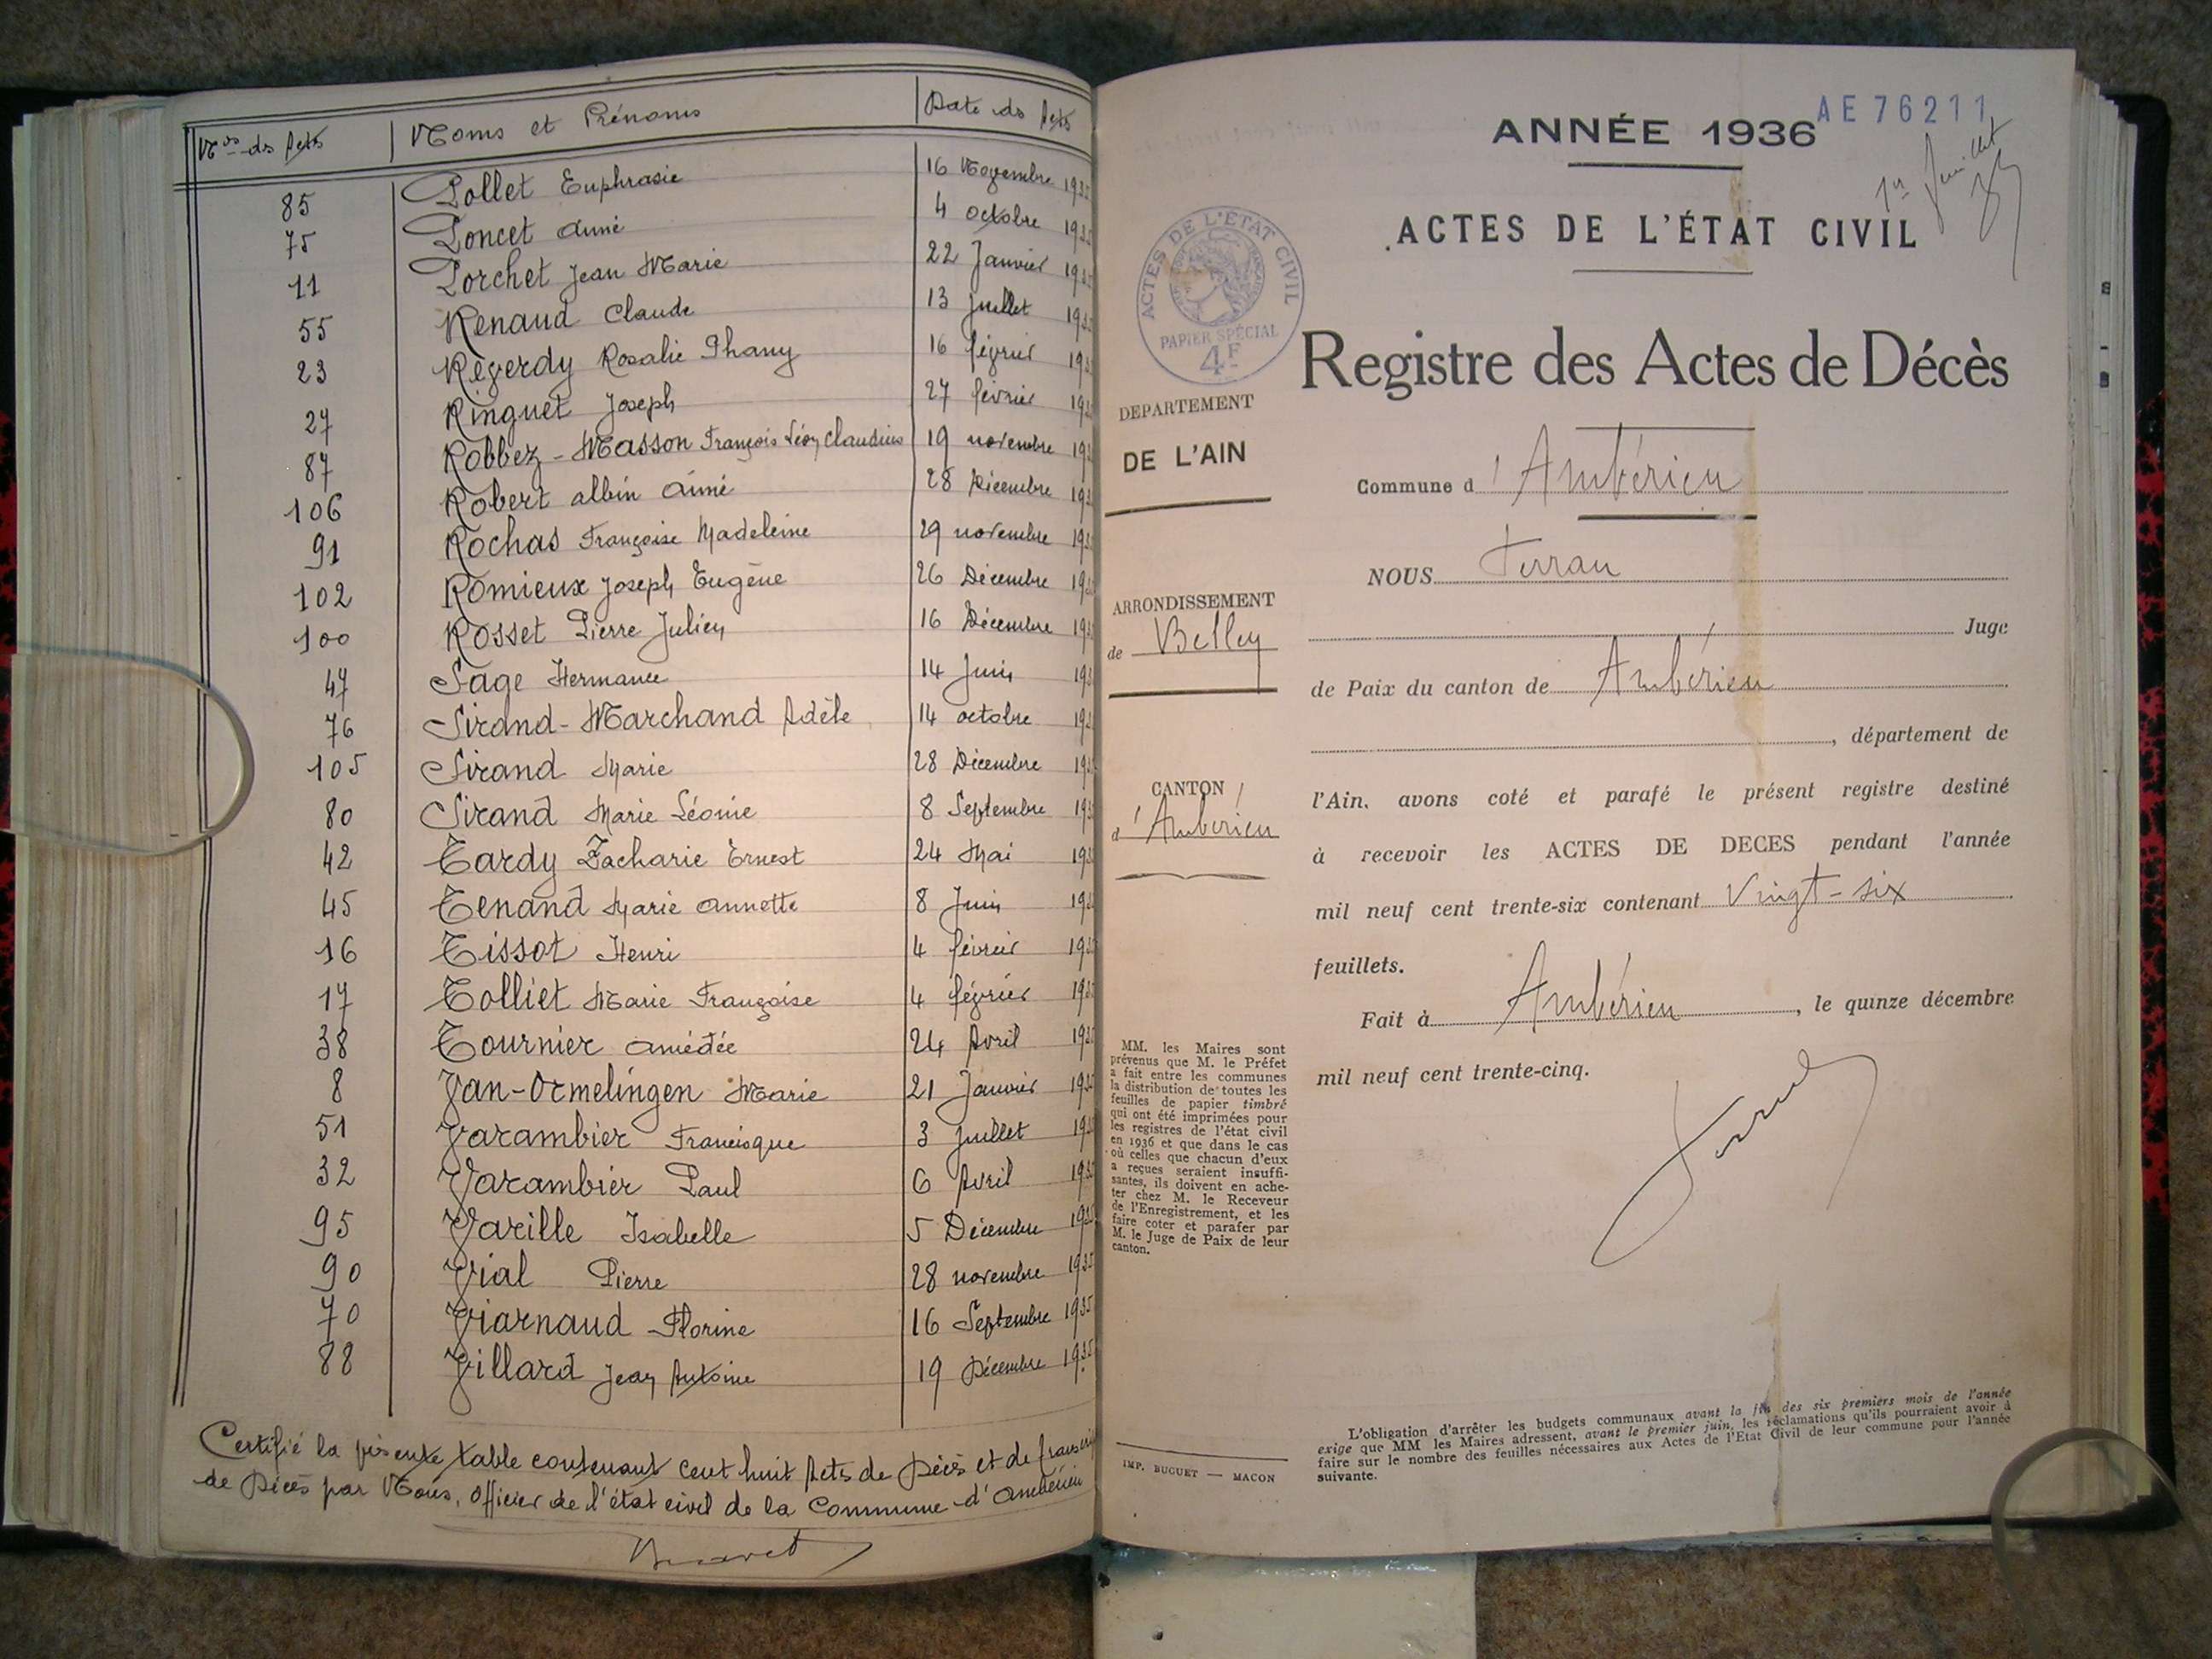 Nos des Actes Noms et Prénoms Date des Actes
85 Pollet Euphrasie 16 Novembre 1935
75 Poncet Aimé 4 octobre 1935
11 Porchet Jean Marie 22 Janvier 1935
55 Renaud Claude 13 juillet 1935
23 Réverdy Rosalie Phany 16 février 1935
27 Ringuet Joseph 27 février 1935
87 Robbez-Masson François Léon Claudius 19 novembre 1935
106 Robert Albin Aimé 28 Décembre 1935
91 Rochas Françoise Madeleine 29 novembre 1935
102 Romieux Joseph Eugène 26 Décembre 1935
100 Rosset Pierre Julien 16 Décembre 1935
47 Sage Hermance 14 Juin 1935
76 Sirand-Marchand Adèle 14 octobre 1935
105 Sirand Marie 28 Décembre 1935
80 Sirand Marie Léonie 8 Septembre 1935
42 Tardy Zacharie Ernest 24 Mai 1935
45 Tenand Marie Annette 8 Juin 1935
16 Tissot Henri 4 février 1935
17 Tolliet Marie Françoise 4 février 1935
38 Tournier Amédée 24 Avril 1935
8 Van-Ormelingen Marie 21 Janvier 1935
51 Varambier Francisque 3 juillet 1935
32 Varambier Paul 6 Avril 1935
95 Varille Isabelle 5 Décembre 1935
90 Vial Pierre 28 novembre 1935
70 Viarnaud Florine 16 Septembre 1935
88 Villard Jean Antoine 19 Décembre 1935
Certifié la présente table contenant cent huit Actes de Décès et de
de Décès par Nous, officier de l'état civil de la Commune d'Ambérieu
AE 76211
ANNÉE 1936
1er Juillet
ACTES DE L'ÉTAT CIVIL
ACTES DE L'ÉTAT CIVIL
PAPIER SPÉCIAL
4F
Registre des Actes de Décès
DEPARTEMENT
DE L'AIN
ARRONDISSEMENT
de Belley
CANTON
d'Ambérieu
MM. les Maires sont
prévenus que M. le Préfet
a fait entre les communes
la distribution de toutes les
feuilles de papier timbré
qui ont été imprimées pour
les registres de l'état civil
en 1936 et que dans le cas
où celles que chacun d'eux
a reçues seraient insuffi-
santes, ils doivent en ache-
ter chez M. le Receveur
de l'Enregistrement, et les
faire coter et parafer par
M. le Juge de Paix de leur
canton.
IMP. BUGUET — MACON
Commune d'Ambérieu
NOUS Ferran
Juge
de Paix du canton de Ambérieu
, département de
l'Ain, avons coté et parafé le présent registre destiné
à recevoir les ACTES DE DECES pendant l'année
mil neuf cent trente-six contenant Vingt-six
feuillets.
Fait à Ambérieu, le quinze décembre
mil neuf cent trente-cinq.
L'obligation d'arrêter les budgets communaux avant la fin des six premiers mois de l'année
exige que MM les Maires adressent, avant le premier juin, les réclamations qu'ils pourraient avoir à
faire sur le nombre des feuilles nécessaires aux Actes de l'Etat Civil de leur commune pour l'année
suivante.